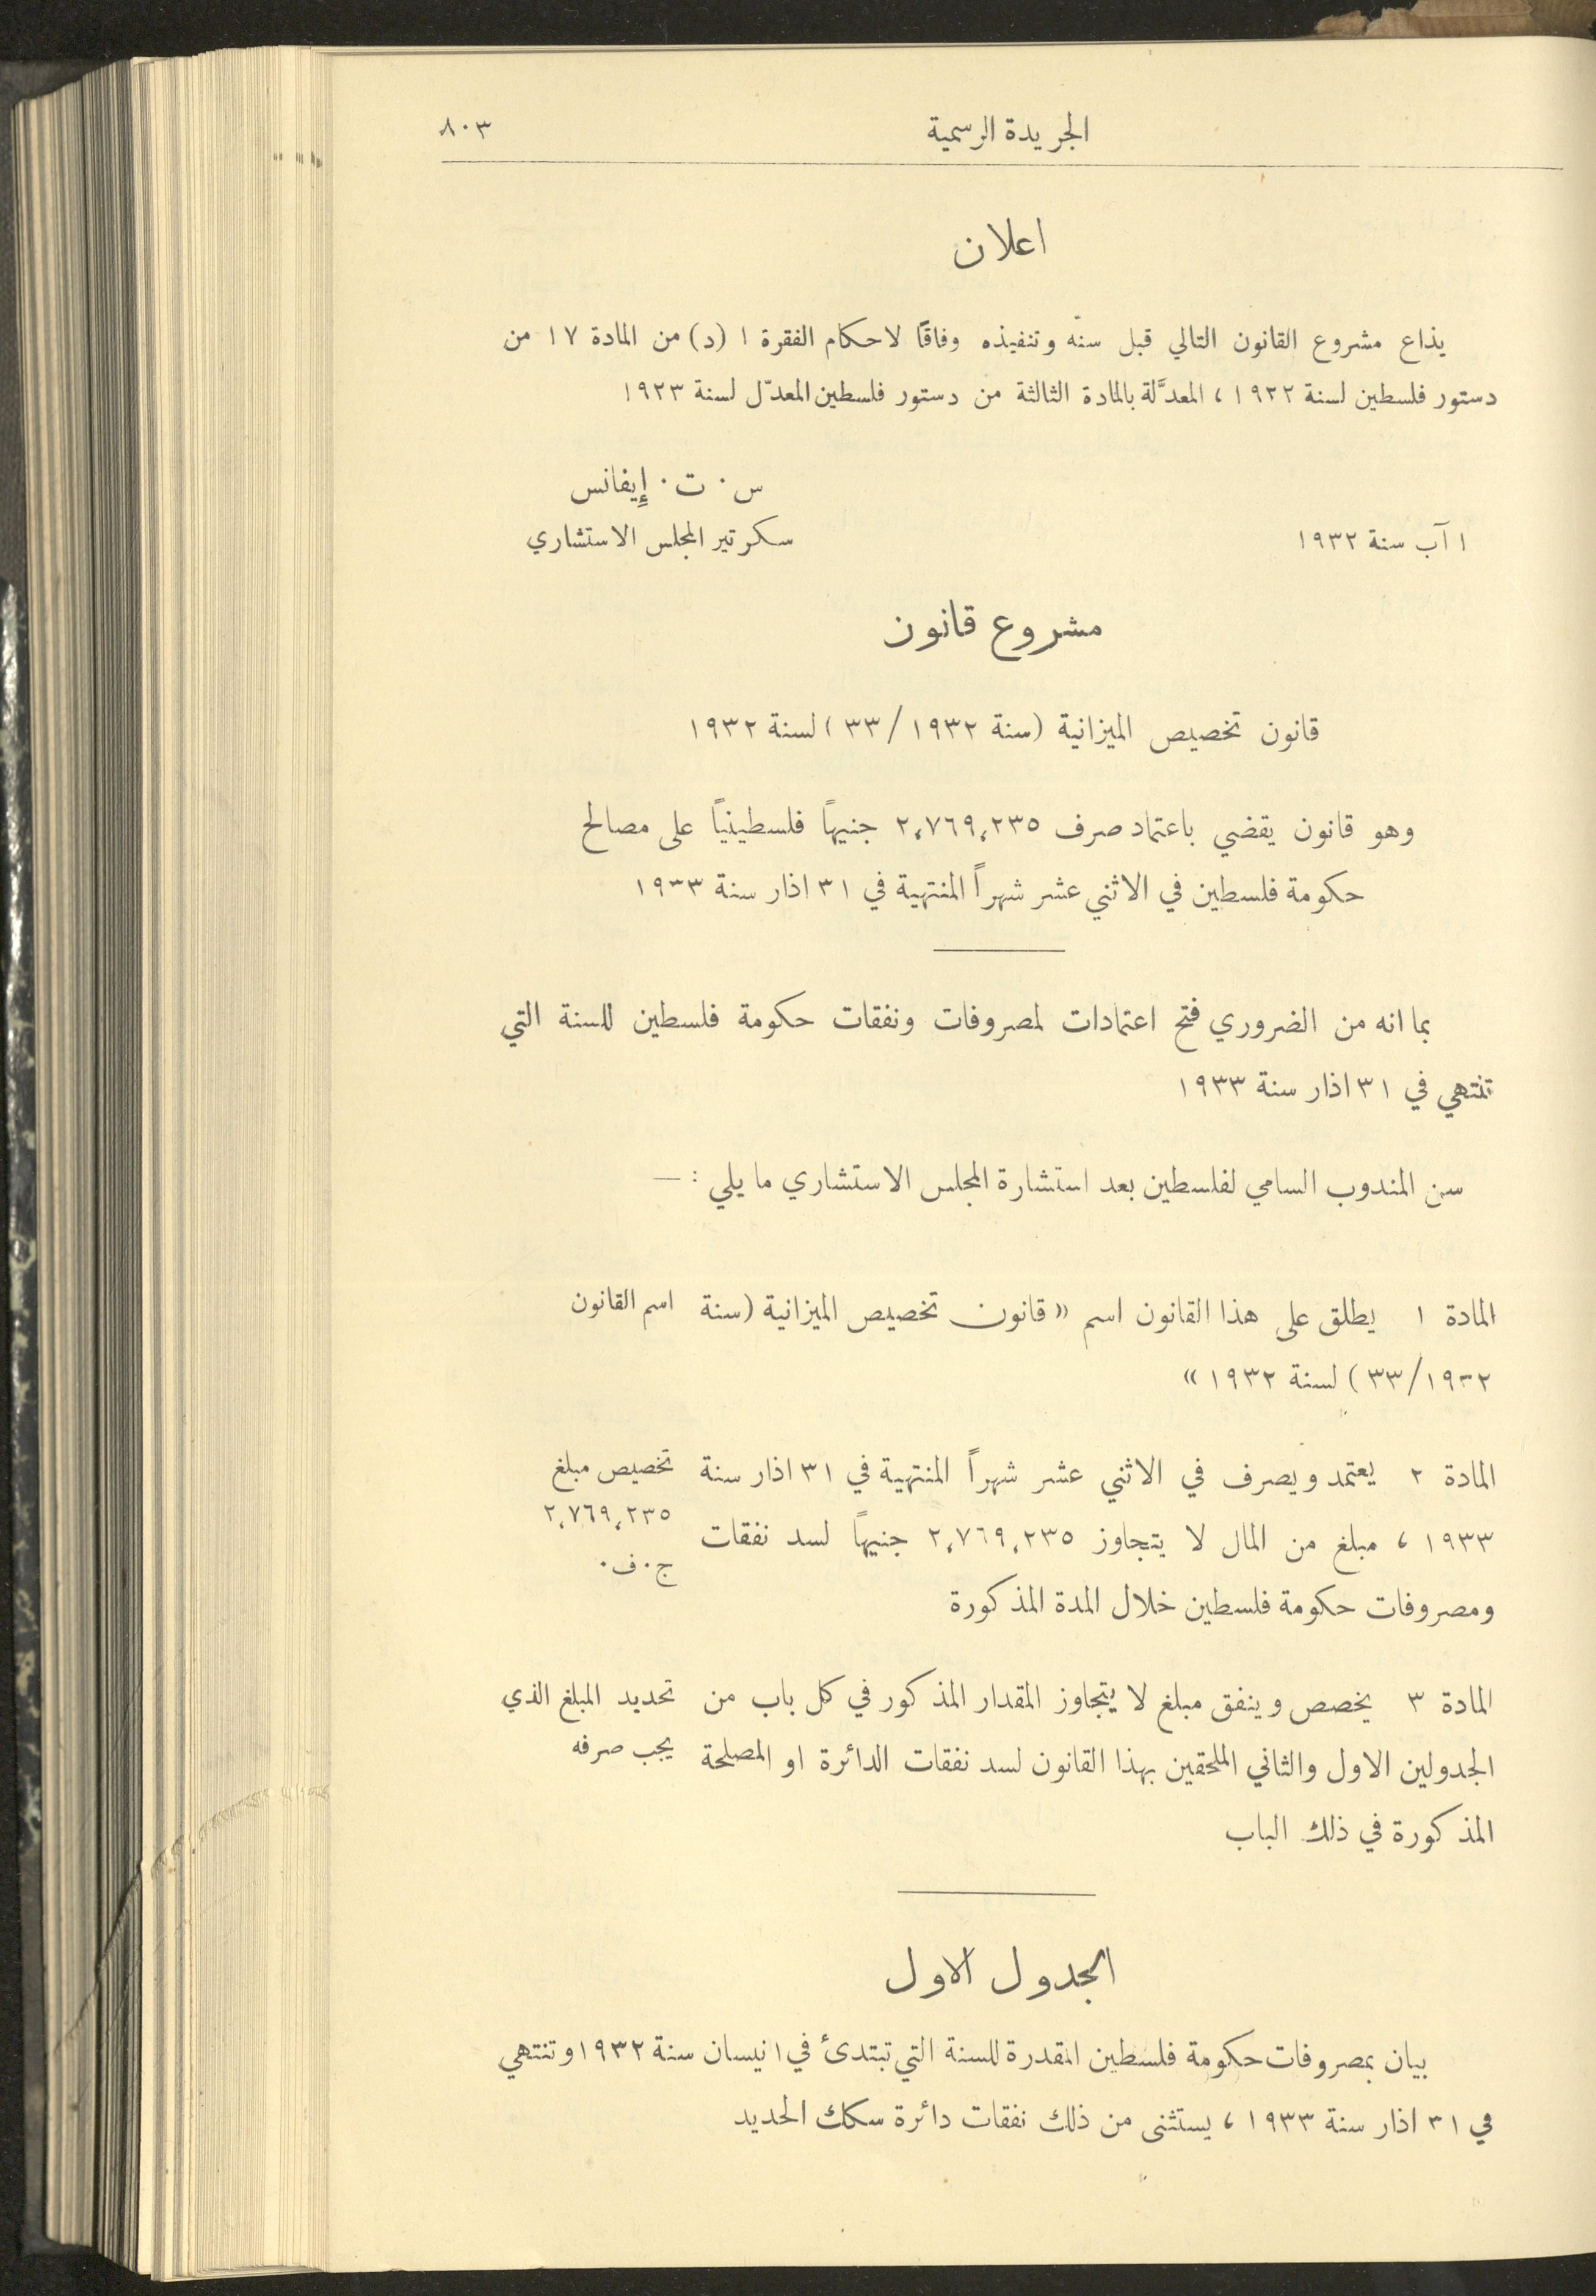 الجريدة الرسمية ٨٠٣
اعلان
يذاع مشروع القانون التالي قبل سنّه وتنفيذه وفاقًا لاحكام الفقرة ١ (د) من المادة ١٧ من
دستور فلسطين لسنة ١٩٢٢ ، المعدَّلة بالمادة الثالثة من دستور فلسطين المعدّل لسنة ١٩٢٣
س . ت . إيفانس
١ آب سنة ١٩٣٢ سكرتير المجلس الاستشاري
مشروع قانون
قانون تخصيص الميزانية (سنة ١٩٣٢/ ٣٣) لسنة ١٩٣٢
وهو قانون يقضي باعتماد صرف ٢،٧٦٩،٢٣٥ جنيهًا فلسطينيًا على مصالح
حكومة فلسطين في الاثني عشر شهراً المنتهية في ٣١ اذار سنة ١٩٣٣
بما انه من الضروري فتح اعتمادات لمصروفات ونفقات حكومة فلسطين للسنة التي
تنتهي في ٣١ اذار سنة ١٩٣٣
سن المندوب السامي لفلسطين بعد استشارة المجلس الاستشاري ما يلي : —
المادة ١ يطلق على هذا القانون اسم « قانون تخصيص الميزانية (سنة
١٩٣٢/ ٣٣) لسنة ١٩٣٢ »
اسم القانون
المادة ٢ يعتمد ويصرف في الاثني عشر شهراً المنتهية في ٣١ اذار سنة
١٩٣٣ ، مبلغ من المال لا يتجاوز ٢،٧٦٩،٢٣٥ جنيهًا لسد نفقات
ومصروفات حكومة فلسطين خلال المدة المذكورة
تخصيص مبلغ
٢،٧٦٩،٢٣٥
ج . ف .
المادة ٣ يخصص وينفق مبلغ لا يتجاوز المقدار المذكور في كل باب من
الجدولين الاول والثاني الملحقين بهذا القانون لسد نفقات الدائرة او المصلحة
المذكورة في ذلك الباب
تحديد المبلغ الذي
يجب صرفه
الجدول الاول
بيان بمصروفات حكومة فلسطين المقدرة للسنة التي تبتدئ في ١ نيسان سنة ١٩٣٢ وتنتهي
في ٣١ اذار سنة ١٩٣٣ ، يستثنى من ذلك نفقات دائرة سكك الحديد